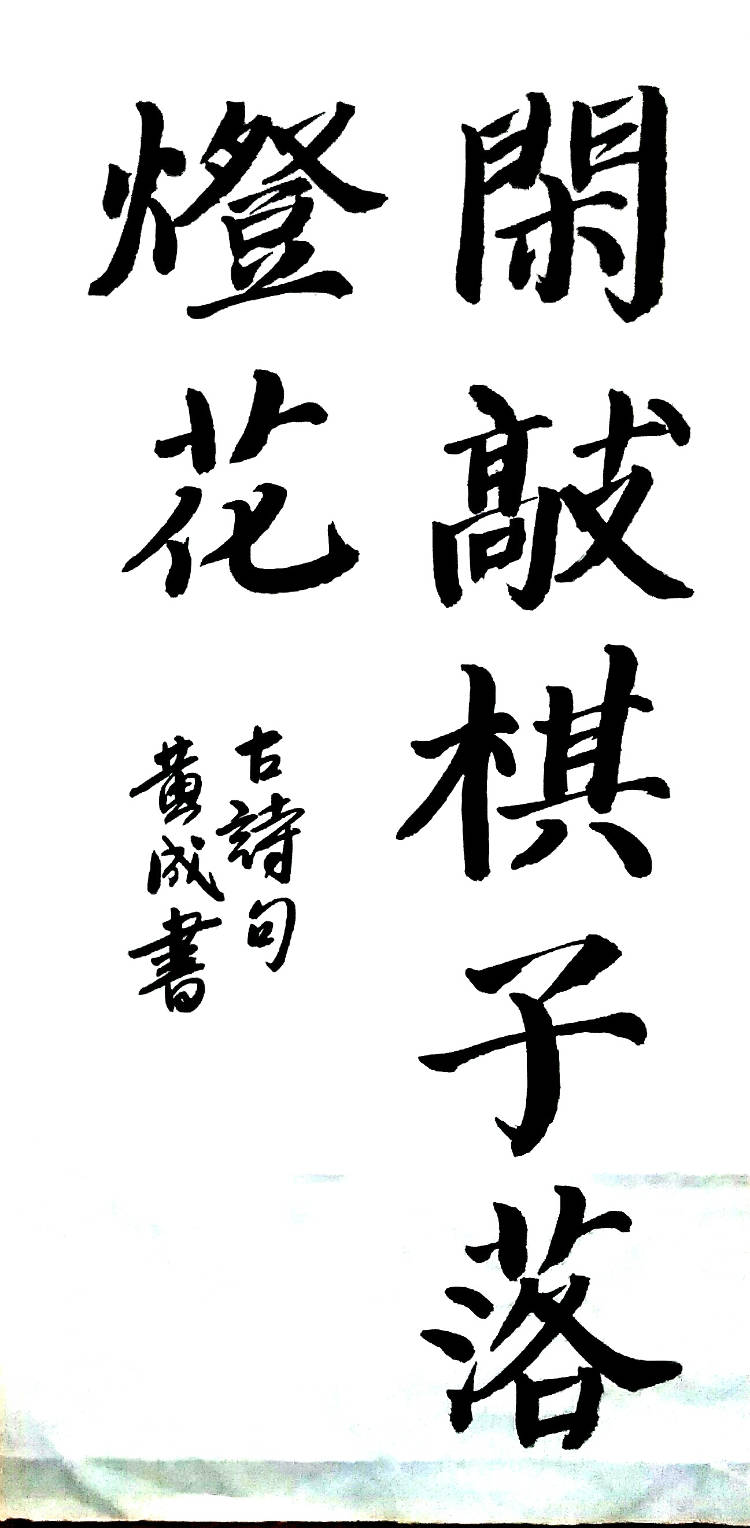 閑敲棋子落
燈花
古詩句
黄成書